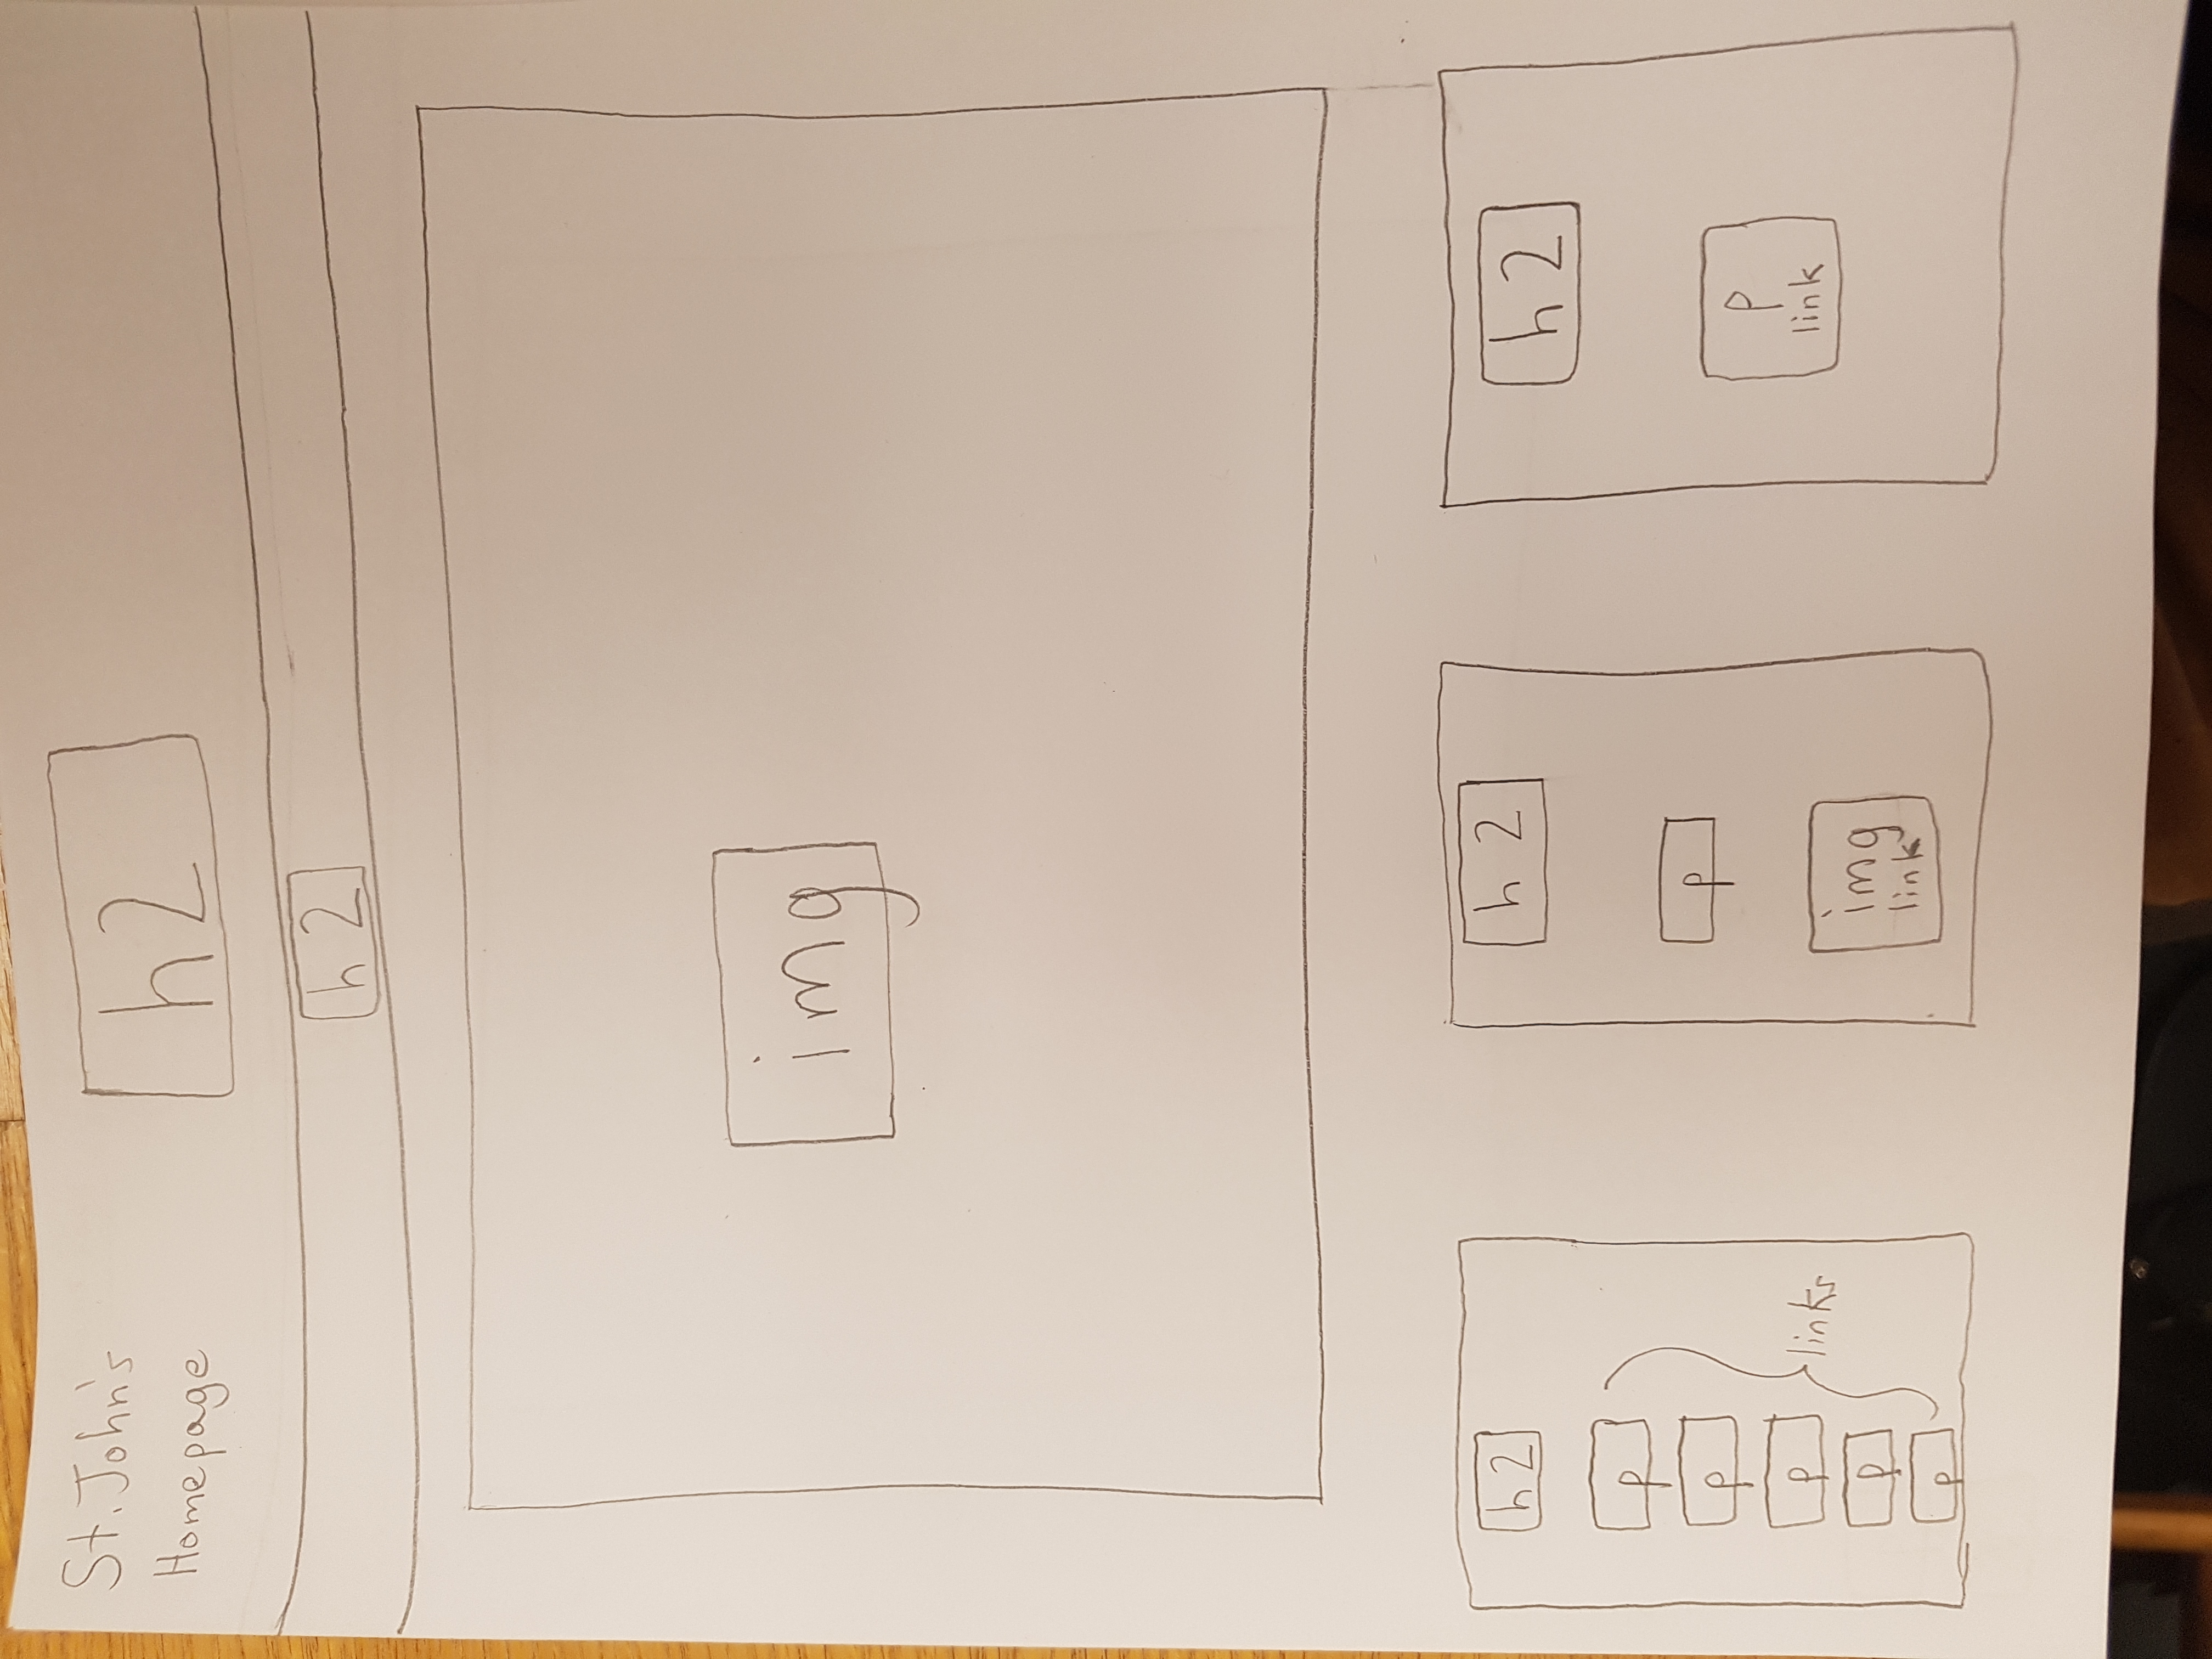 St. John's
Homepage
h2
h2
img
h2
p
p
p
p
p
links
h2
p
img
link
h2
p
link